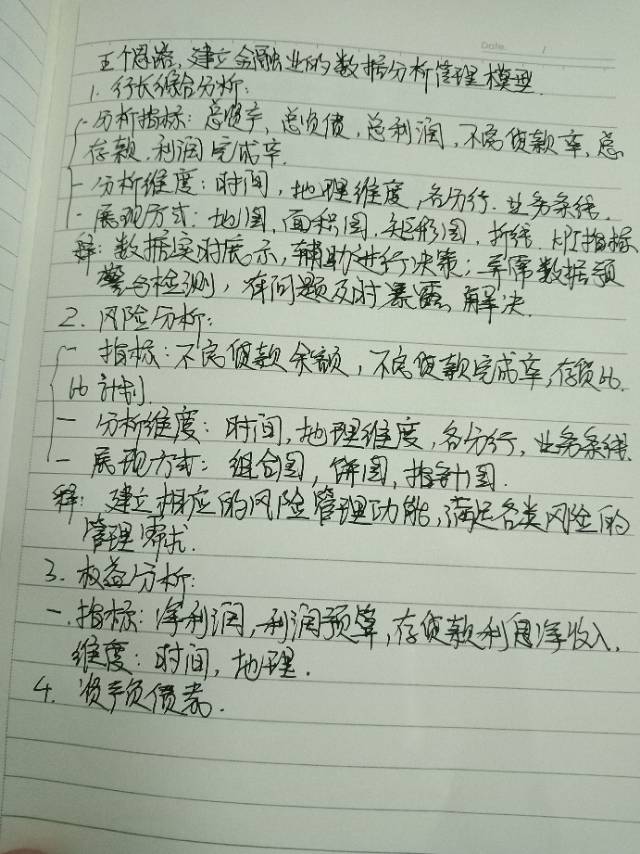 Date.
五个思路,建立金融业的数据分析管理模型.
1. 行长综合分析:
- 分析指标:总资产,总负债,总利润,不良贷款率,总
存款,利润完成率.
- 分析维度:时间,地理维度,各分行.业务条线.
- 展现方式:地图,面积图,矩形图,折线.KPI指标
释:数据实时展示,辅助进行决策;异常数据预
警与检测,有问题及时暴露,解决.
2. 风险分析:
- 指标:不良贷款余额,不良贷款完成率,存贷比.
比计划.
- 分析维度:时间,地理维度,各分行,业务条线.
- 展现方式:组合图,饼图,指针图.
释:建立相应的风险管理功能,满足各类风险的
管理需求.
3. 权益分析:
- 指标:净利润,利润预算,存贷款利息净收入.
维度:时间,地理.
4. 资产负债表.